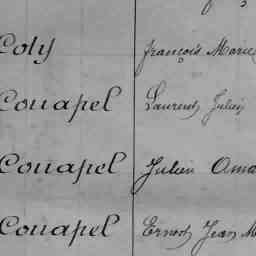 Coty François Marie
Couapel Laurent Julien
Couapel Julien Ama
Couapel Ernest Jean M